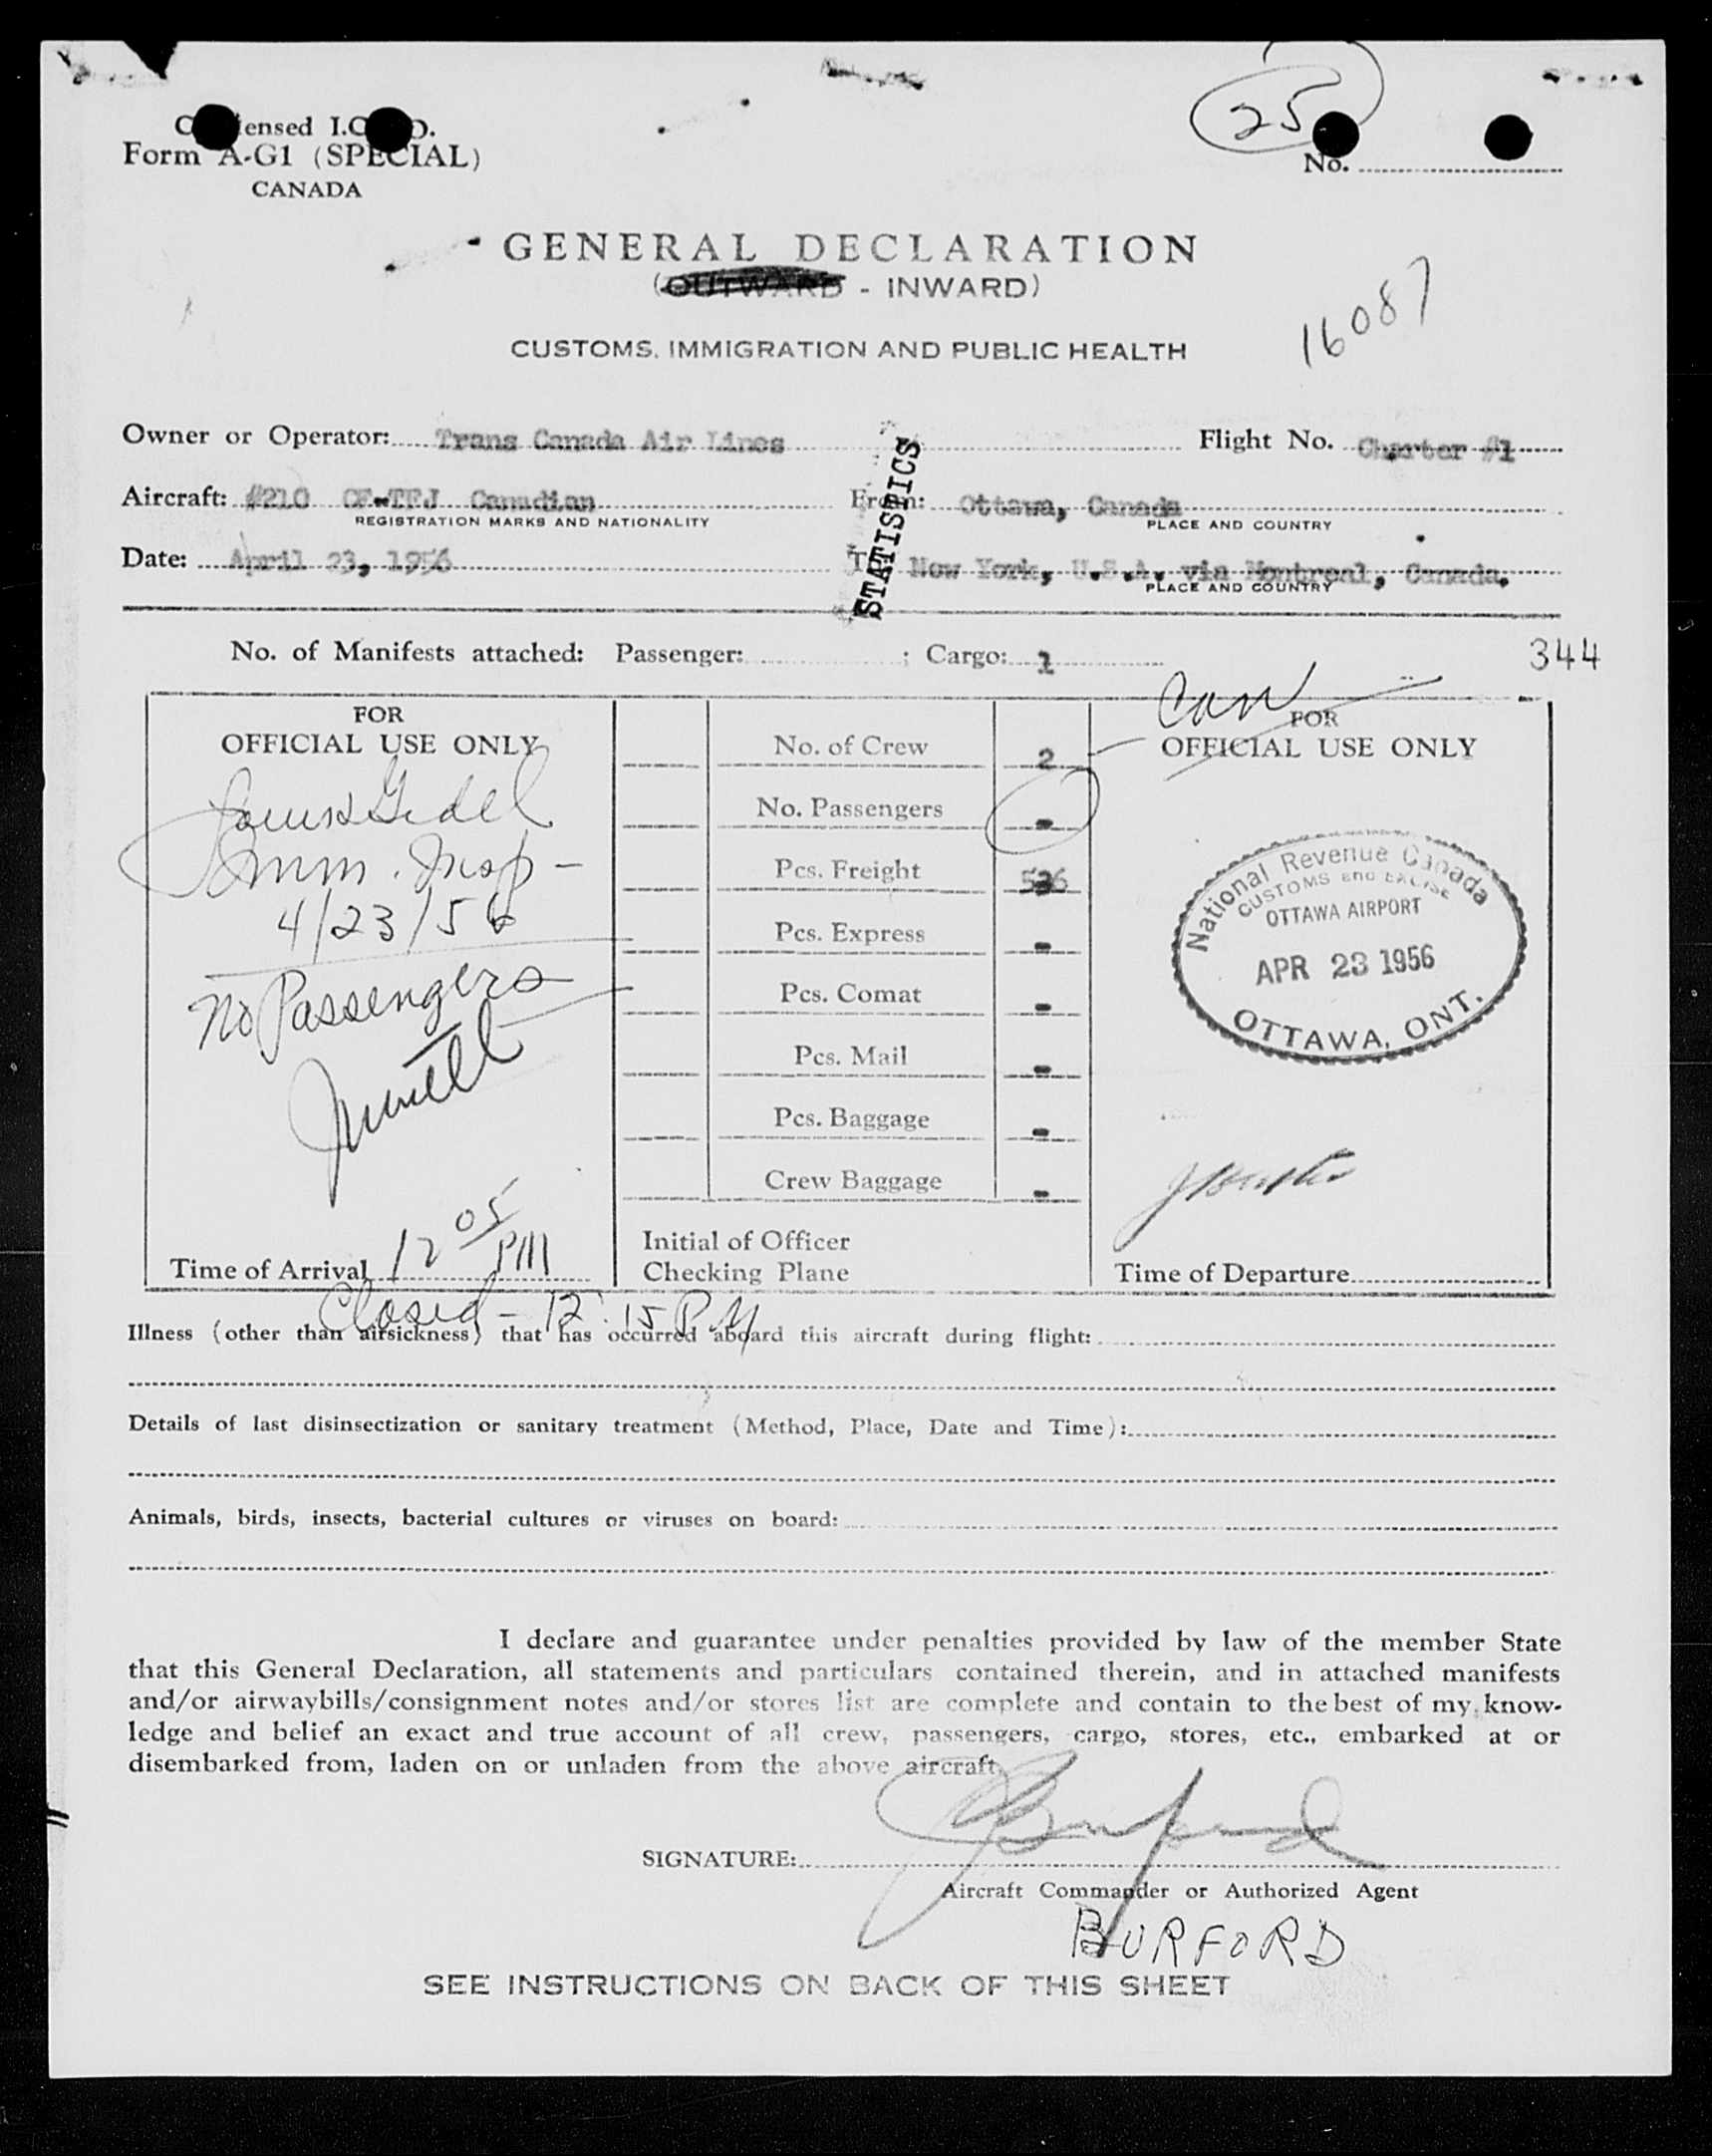 25
Form A-G1 (SPECIAL)
CANADA
No.
GENERAL DECLARATION
(OUTWARD - INWARD)
16087
CUSTOMS, IMMIGRATION AND PUBLIC HEALTH
Owner or Operator: Trans Canada Air Lines Flight No. Charter #1
STATISTICS
Aircraft: #210 CF-TFJ Canadian From: Ottawa, Canada
REGISTRATION MARKS AND NATIONALITY PLACE AND COUNTRY
Date: April 23, 1956 New York, U.S.A. via Montreal, Canada.
PLACE AND COUNTRY
No. of Manifests attached: Passenger: ; Cargo: 1
344
FOR
OFFICIAL USE ONLY
Imm. Insp -
4/23/56
No Passengers
Time of Arrival 12 05 PM
Closed - 12:15 PM
No. of Crew 2
No. Passengers -
Pcs. Freight
Pcs. Express -
Pcs. Comat -
Pcs. Mail -
Pcs. Baggage -
Crew Baggage -
Initial of Officer
Checking Plane
FOR
OFFICIAL USE ONLY
National Revenue Canada
CUSTOMS and EXCISE
OTTAWA AIRPORT
APR 23 1956
OTTAWA, ONT.
Time of Departure
Illness (other than airsickness) that has occurred aboard this aircraft during flight:
Details of last disinsectization or sanitary treatment (Method, Place, Date and Time):
Animals, birds, insects, bacterial cultures or viruses on board:
I declare and guarantee under penalties provided by law of the member State
that this General Declaration, all statements and particulars contained therein, and in attached manifests
and/or airwaybills/consignment notes and/or stores list are complete and contain to the best of my know-
ledge and belief an exact and true account of all crew, passengers, cargo, stores, etc., embarked at or
disembarked from, laden on or unladen from the above aircraft
SIGNATURE:
Aircraft Commander or Authorized Agent
BURFORD
SEE INSTRUCTIONS ON BACK OF THIS SHEET